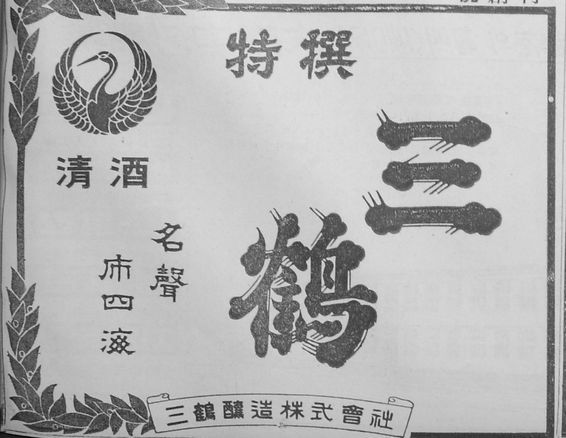 特撰
三鶴
清酒
名聲
布四海
三鶴釀造株式會社